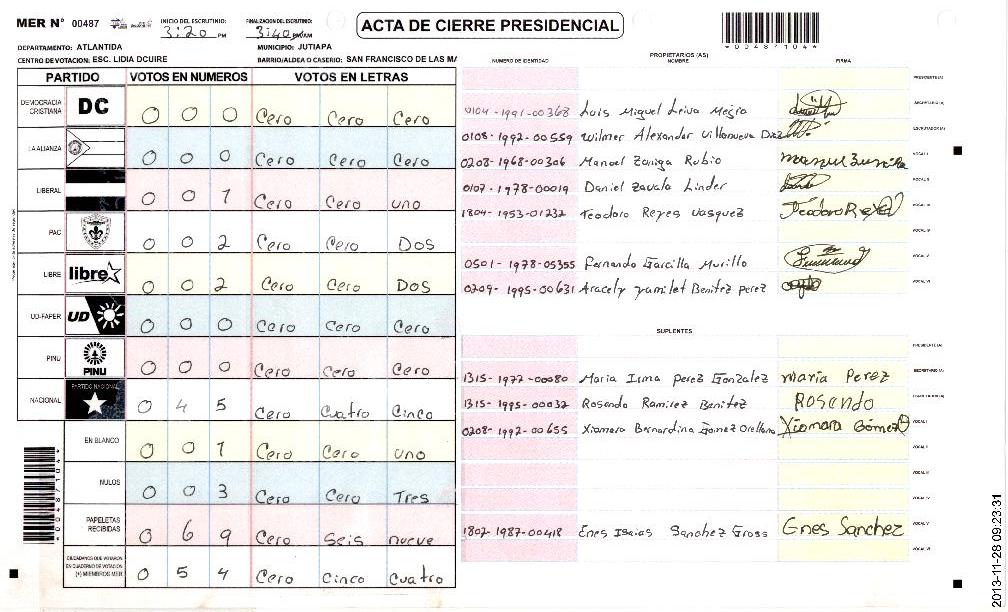 MER N° 00487
INICIO DEL ESCRUTINIO:
3:20 PM
FINALIZACION DEL ESCRUTINIO:
3:40
ACTA DE CIERRE PRESIDENCIAL
*00487104*
DEPARTAMENTO: ATLANTIDA
MUNICIPIO: JUTIAPA
CENTRO DE VOTACION: ESC. LIDIA DCUIRE
BARRIO/ALDEA O CASERIO: SAN FRANCISCO DE LAS MA
PARTIDO VOTOS EN NUMEROS VOTOS EN LETRAS
DEMOCRACIA CRISTIANA DC 0 0 0 Cero Cero Cero
LA ALIANZA 0 0 0 Cero Cero Cero
LIBERAL 0 0 1 Cero Cero uno
PAC 0 0 2 Cero Cero Dos
LIBRE libre 0 0 2 Cero Cero Dos
UD-FAPER UD 0 0 0 Cero Cero Cero
PINU PINU 0 0 0 Cero Cero Cero
NACIONAL PARTIDO NACIONAL 0 4 5 Cero Cuatro Cinco
EN BLANCO 0 0 1 Cero Cero uno
NULOS 0 0 3 Cero Cero Tres
PAPELETAS RECIBIDAS 0 6 9 Cero Seis nueve
CIUDADANOS QUE VOTARON EN CUADERNO DE VOTACION (+) MIEMBROS MER 0 5 4 Cero Cinco Cuatro
*00487104*
NUMERO DE IDENTIDAD
PROPIETARIOS (AS)
NOMBRE
FIRMA
PRESIDENTE(A)
0104-1991-00368 Luis Miguel Leiva Negro SECRETARIO(A)
0108-1992-00559 Wilmer Alexander Villanueva Diaz ESCRUTADOR(A)
0208-1968-00306 Manuel Zuniga Rubio Manuel Zuniga VOCAL I
0107-1978-00019 Daniel Zavala Linder VOCAL II
1804-1953-01232 Teodoro Reyes Vasquez Teodoro Reyes VOCAL III
VOCAL IV
0501-1978-05355 Fernando Garcilla Murillo VOCAL V
0209-1995-00631 Aracely Yamilet Benitez perez VOCAL VI
SUPLENTES
PRESIDENTE(A)
1315-1977-00080 Maria Irma perez Gonzalez maria Perez SECRETARIO(A)
1315-1995-00032 Rosendo Ramirez Benitez Rosendo
0208-1992-00655 Xiomara Bernardina Gomez Orellana Xiomara Gómez VOCAL I
VOCAL II
VOCAL III
VOCAL IV
1802-1987-00418 Enes Isaias Sanchez Gross Enes Sanchez VOCAL V
VOCAL VI
2013-11-28 09:23:31